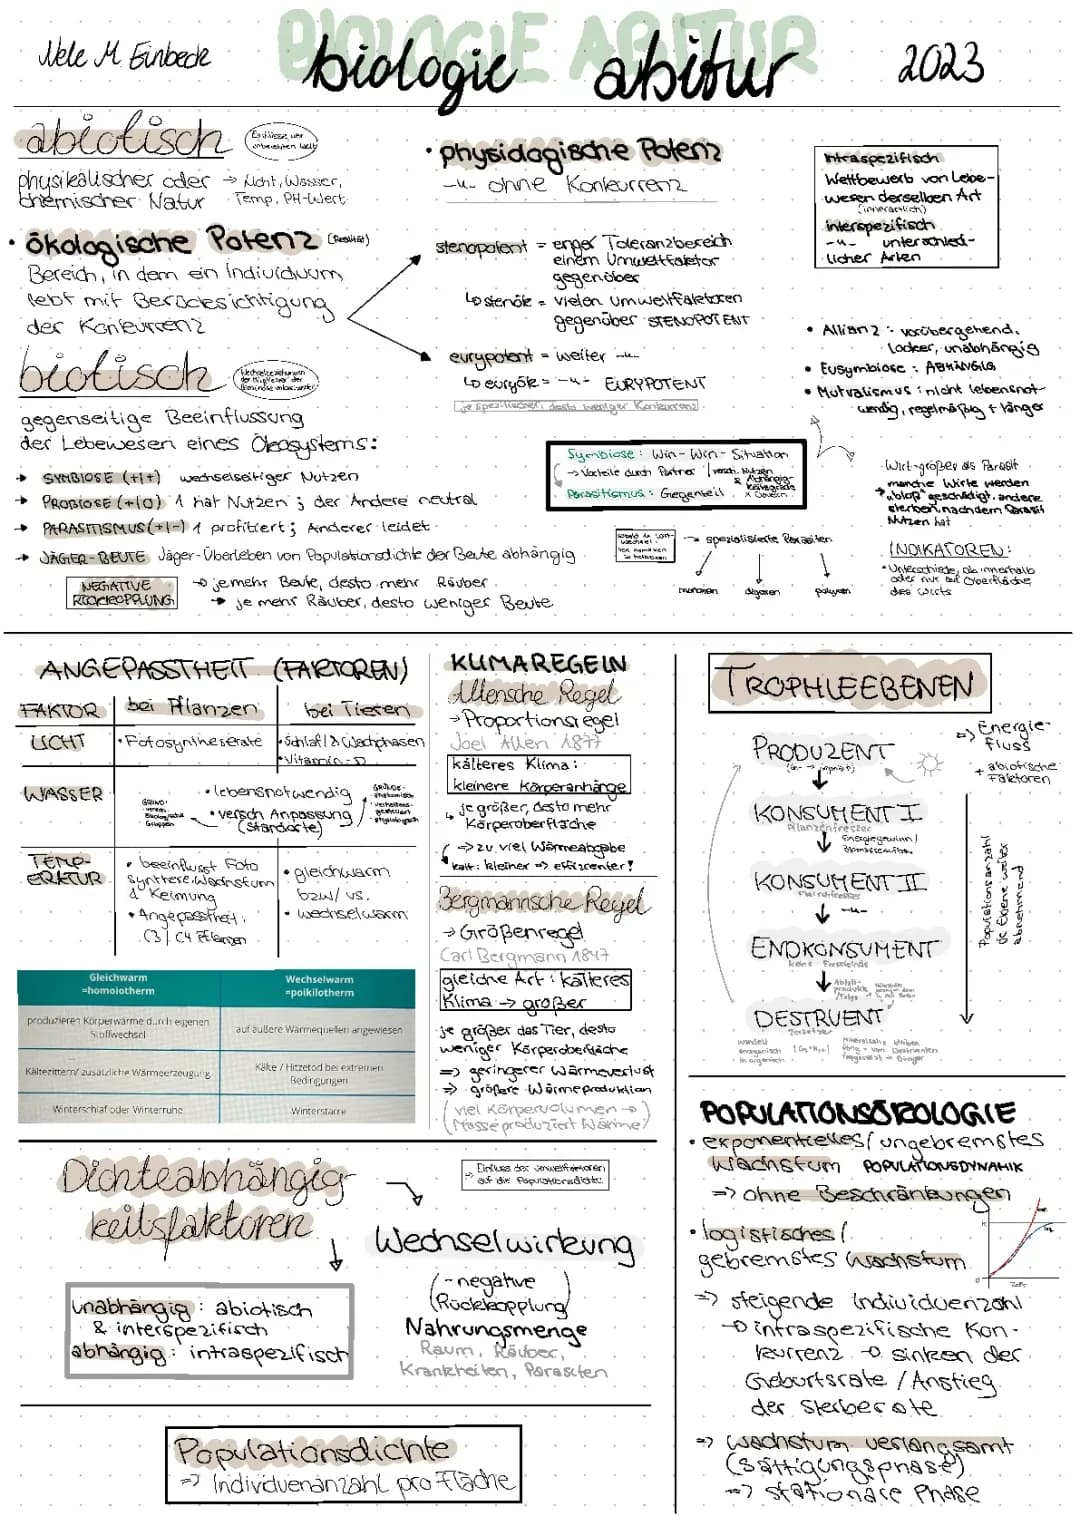 BIOLOGIE ABITUR
Nele M Einbeck
biologie abitur
2023
abiotisch
physikalischer oder
chemischer Natur
→ Licht, Wasser,
Temp. PH-Wert
• ökologische Potenz (Realität)
Bereich, in dem ein Individuum
lebt mit Berücksichtigung
der Konkurrenz
• physiologische Potenz
-"- ohne Konkurrenz
stenopotent = enger Toleranzbereich
einem Umweltfaktor
gegenüber
↳ stenök = vielen Umweltfaktoren
gegenüber STENOPOTENT
eurypotent = weiter -"-
↳ euryök = -"- EURYPOTENT
je spezifischer, desto weniger Konkurrenz
intraspezifisch
Wettbewerb von Lebe-
wesen derselben Art
(innerartlich)
interspezifisch
-"- unterschied-
licher Arten
• Allianz : vorübergehend,
locker, unabhängig
• Eusymbiose : ABHÄNGIG
• Mutualismus : nicht lebensnot-
wendig, regelmäßig + länger
biotisch
gegenseitige Beeinflussung
der Lebewesen eines Ökosystems:
→ SYMBIOSE (+|+) wechselseitiger Nutzen
→ PROBIOSE (+|0) 1 hat Nutzen ; der Andere neutral
→ PARASITISMUS (+|-) 1 profitiert ; Anderer leidet
→ JÄGER-BEUTE Jäger-Überleben von Populationsdichte der Beute abhängig
NEGATIVE
RÜCKKOPPLUNG
→ je mehr Beute, desto mehr Räuber
→ je mehr Räuber, desto weniger Beute
Symbiose : Win-Win-Situation
→ Vorteile durch Partner
Parasitismus : Gegenteil
→ spezialisierte Parasiten
monoxen
digoxen
polyxen
· Wirt größer als Parasit
manche Wirte werden
"bloß" geschädigt, andere
sterben, nachdem Parasit
Nutzen hat
INDIKATOREN:
• Unterschiede, ob innerhalb
oder nur auf Oberfläche
des Wirts
ANGEPASSTHEIT (FAKTOREN)
FAKTOR
bei Pflanzen
bei Tieren
LICHT
• Fotosyntheserate
• Schlaf/& Wachphasen
• Vitamin-D
WASSER
• lebensnotwendig
• versch. Anpassung
(Standorte)
TEMP-
ERATUR
• beeinflusst Foto
synthese, Wachstum
& Keimung
• Angepasstheit:
C3/C4 Pflanzen
• gleichwarm
bzw/vs.
• wechselwarm
Gleichwarm
=homoiotherm
Wechselwarm
=poikilotherm
produzieren Körperwärme durch eigenen
Stoffwechsel
auf äußere Wärmequellen angewiesen
Kältezittern/ zusätzliche Wärmeerzeugung
Kälte / Hitzetod bei extremen
Bedingungen
Winterschlaf oder Winterruhe
Winterstarre
KLIMAREGELN
Allensche Regel
→ Proportionsregel
Joel Allen 1877
kälteres Klima:
kleinere Körperanhänge
↳ je größer, desto mehr
Körperoberfläche
→ zu viel Wärmeabgabe
kalt: kleiner => effizienter!
Bergmannsche Regel
→ Größenregel
Carl Bergmann 1847
gleiche Art : kälteres
Klima → größer
je größer das Tier, desto
weniger Körperoberfläche
=> geringerer Wärmeverlust
=> größere Wärmeproduktion
(viel Körpervolumen →
Masse produziert Wärme)
TROPHIEEBENEN
PRODUZENT
=> Energie-
fluss
+ abiotische
Faktoren
KONSUMENT I
Pflanzenfresser
Energiegewinn/
KONSUMENT II
-"-
ENDKONSUMENT
keine Fressfeinde
DESTRUENT
Zersetzer
Populationsanzahl
je Ebene weiter
abnehmend
Dichteabhängig-
keitsfaktoren
Einfluss der Umweltfaktoren
auf die Populationsdichte
unabhängig : abiotisch
& interspezifisch
abhängig : intraspezifisch
Wechselwirkung
(-negative
Rückkopplung)
Nahrungsmenge
Raum, Räuber,
Krankheiten, Parasiten
Populationsdichte
=> Individuenanzahl pro Fläche
POPULATIONSÖKOLOGIE
• exponentielles/ungebremstes
Wachstum POPULATIONSDYNAMIK
=> ohne Beschränkungen
• logistisches/
gebremstes Wachstum
K
0
Zeit
=> steigende Individuenzahl
→ intraspezifische Kon-
kurrenz → sinken der
Geburtsrate / Anstieg
der Sterberate
=> Wachstum verlangsamt
(Sättigungsphase)
=> stationäre Phase